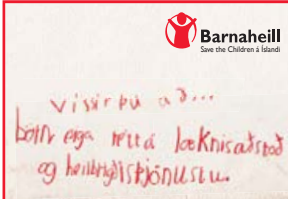 Barnaheill
Save the Children á Íslandi
vissir þú að...
börn eiga rétt á læknisaðstoð
og heilbrigðisþjónustu.